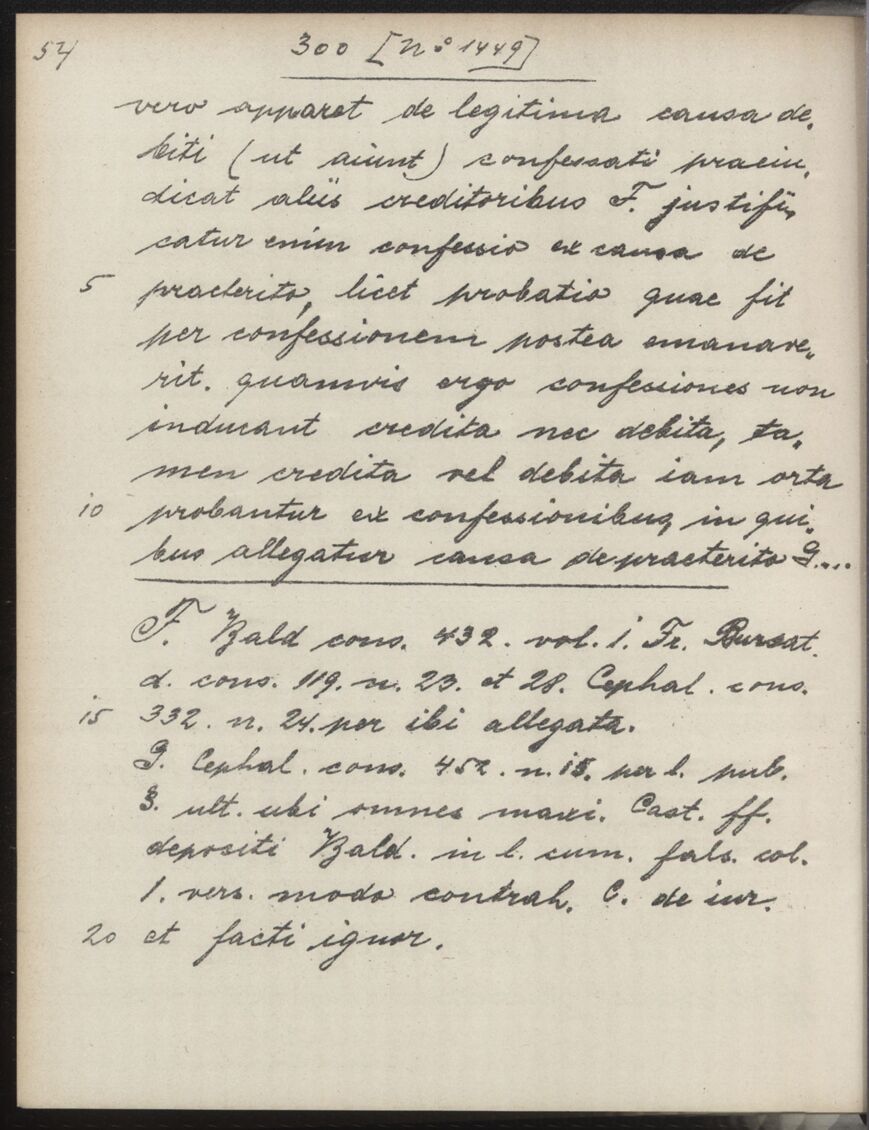 54 300 [No 1449]
vero apparet de legitima causa de„
biti (ut aiunt) confessati praeiu„
dicat aliis creditoribus F. justifi„
catur enim confessio ex causa de
5 praeterito, licet probatio quae fit
per confessionem postea emanave„
rit. quamvis ergo confessiones non
inducant credita nec debita, ta„
men credita vel debita iam orta
10 probantur ex confessionibus, in qui„
bus allegatur causa de praeterito G....
F. Bald cons. 432. vol. 1. Fr. Bursat.
d. cons. 119. n. 23. et 28. Cephal. cons.
15 332. n. 24. per ibi allegata.
G. Cephal. cons. 452. n. 15. per l. pub.
§. ult. ubi omnes maxi. Cast. ff.
depositi Bald. in l. cum. fals. col.
1. vers. modo contrah. C. de iur.
20 et facti ignor.